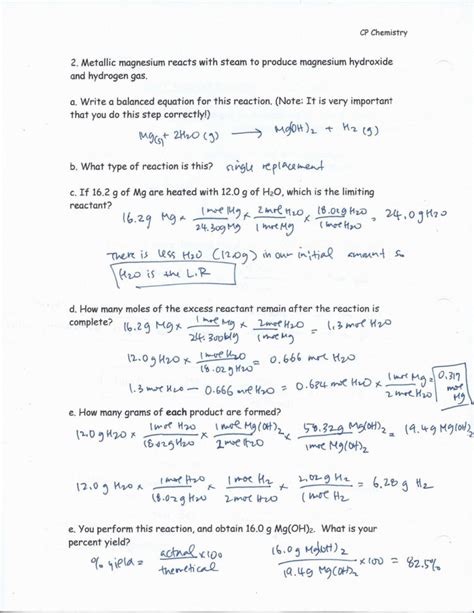 CP Chemistry
2. Metallic magnesium reacts with steam to produce magnesium hydroxide
and hydrogen gas.
a. Write a balanced equation for this reaction. (Note: It is very important
that you do this step correctly!)
Mg(s) + 2H2O(g) → Mg(OH)2 + H2(g)
b. What type of reaction is this? single replacement
c. If 16.2 g of Mg are heated with 12.0 g of H2O, which is the limiting
reactant?
16.2g Mg × 1 mol Mg / 24.30g Mg × 2 mol H2O / 1 mol Mg × 18.02g H2O / 1 mol H2O = 24.0 g H2O
There is less H2O (12.0g) in our initial amount so
H2O is the L.R
d. How many moles of the excess reactant remain after the reaction is
complete? 16.2g Mg × 1 mol Mg / 24.300g Mg × 2 mol H2O / 1 mol Mg = 1.3 mol H2O
12.0g H2O × 1 mol H2O / 18.02g H2O = 0.666 mol H2O
1.3 mol H2O − 0.666 mol H2O = 0.634 mol H2O × 1 mol Mg / 2 mol H2O = 0.317 mol Mg
e. How many grams of each product are formed?
12.0g H2O × 1 mol H2O / 18.02g H2O × 1 mol Mg(OH)2 / 2 mol H2O × 58.32g Mg(OH)2 / 1 mol Mg(OH)2 = 19.4g Mg(OH)2
12.0g H2O × 1 mol H2O / 18.02g H2O × 1 mol H2 / 2 mol H2O × 2.02g H2 / 1 mol H2 = 6.28 g H2
e. You perform this reaction, and obtain 16.0 g Mg(OH)2. What is your
percent yield?
% yield = actual / theoretical × 100 16.0g Mg(OH)2 / 19.4g Mg(OH)2 × 100 = 82.5%